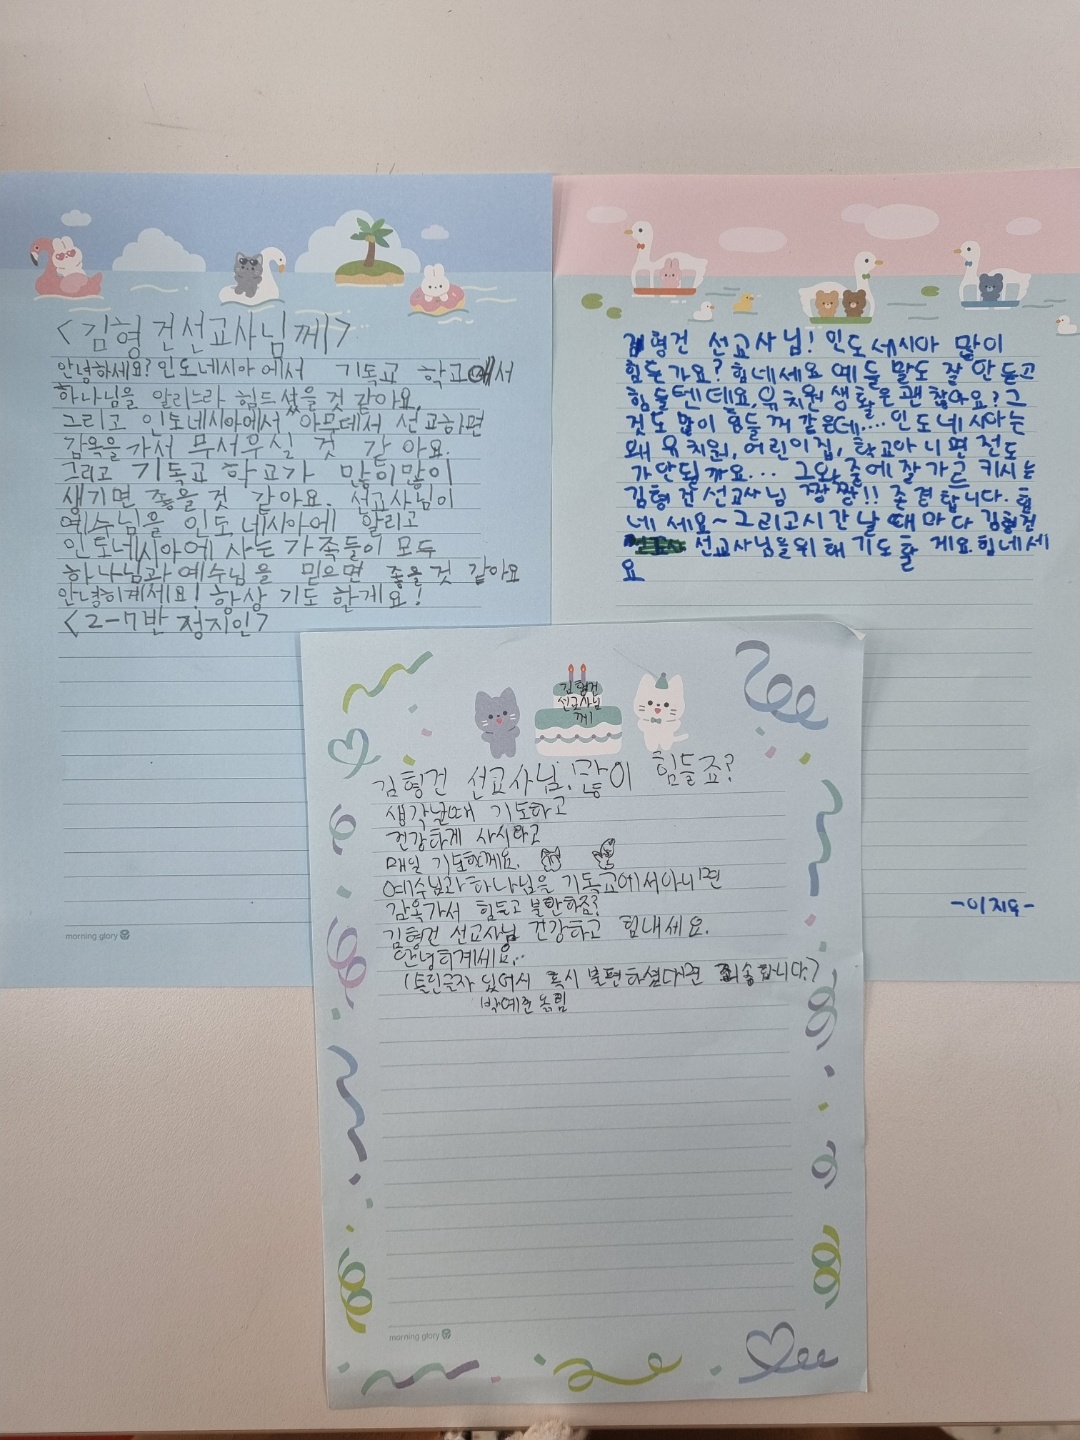 <김형건선교사님께>
안녕하세요? 인도네시아에서 기독교 학교에서
하나님을 알리느라 힘드셨을것 같아요.
그리고 인도네시아에서 아무데서 선교하면
감옥을가서 무서우실 것 같아요.
그리고 기독교 학교가 많이많이
생기면 좋을것 같아요. 선교사님이
예수님을 인도네시아에 알리고
인도네시아에 사는 가족들이 모두
하나님과 예수님을 믿으면 좋을것 같아요
안녕히계세요! 항상 기도 한게요!
<2-7반 정지인>
morning glory
김형건 선교사님! 인도세시아 많이
힘든가요? 힘네세요 예들 말도 잘 안듣고
힘들텐데요. 유치원 생활은 괜찮아요? 그
것도 많이 힘들꺼 같은데.... 인도네시아는
왜 유치원, 어린이집, 학교아니면 전도
가안될까요... 그와중에잘가르키시는
김형건선교사님 짱짱!! 존경합니다. 힘
네세요~ 그리고시간날때마다 김형건
선교사님을위해기도할게요. 힘네세
요
김형건
선교사님
께!
김형건 선교사님, 많이 힘들죠?
생각날때 기도하고
건강하게 사시라고
매일 기도한께요.
예수님과하나님을 기독교에서아니면
감옥가서 힘들고 불안하죠?
김형건 선교사님 건강하고 힘내세요.
안녕히계세요..
(틀린글자 있어서 혹시 불편하셨다면 죄송합니다.)
박예준 올림
morning glory